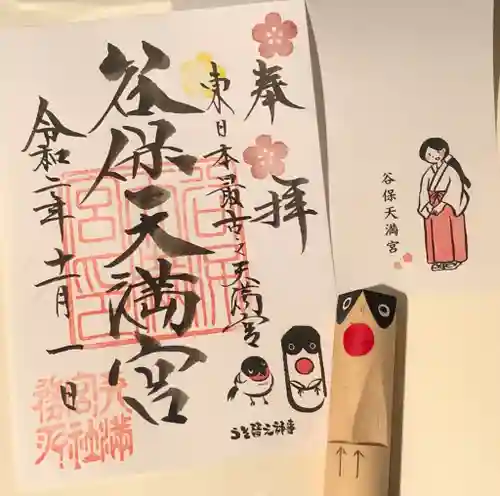 奉拝
東日本最古之天満宮
谷保天満宮
令和二年十一月一日
うそ替え神事
谷保天満宮